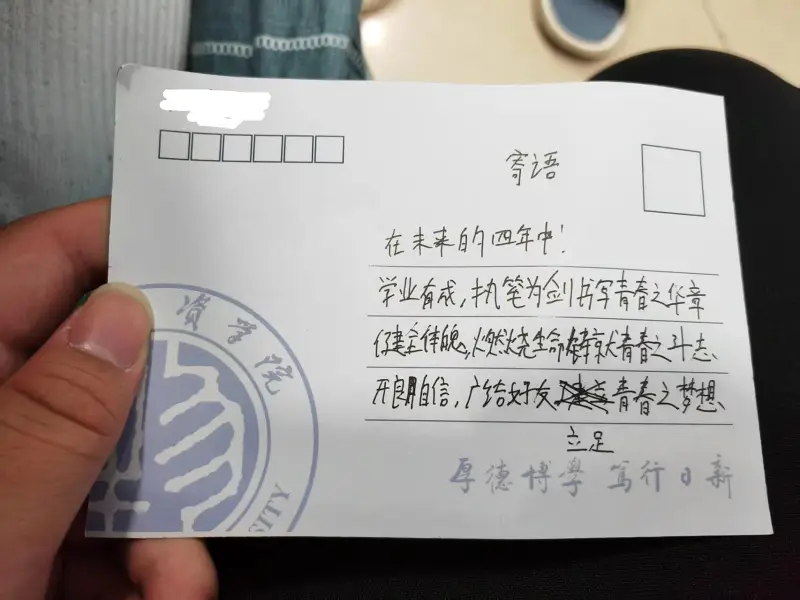 寄语
在未来的四年中！
学业有成，执笔为剑书写青春之华章
健全体魄，燃烧生命铸就青春之斗志
开朗自信，广结好友青春之梦想
立足
厚德博學 篤行日新
资学院
SITY